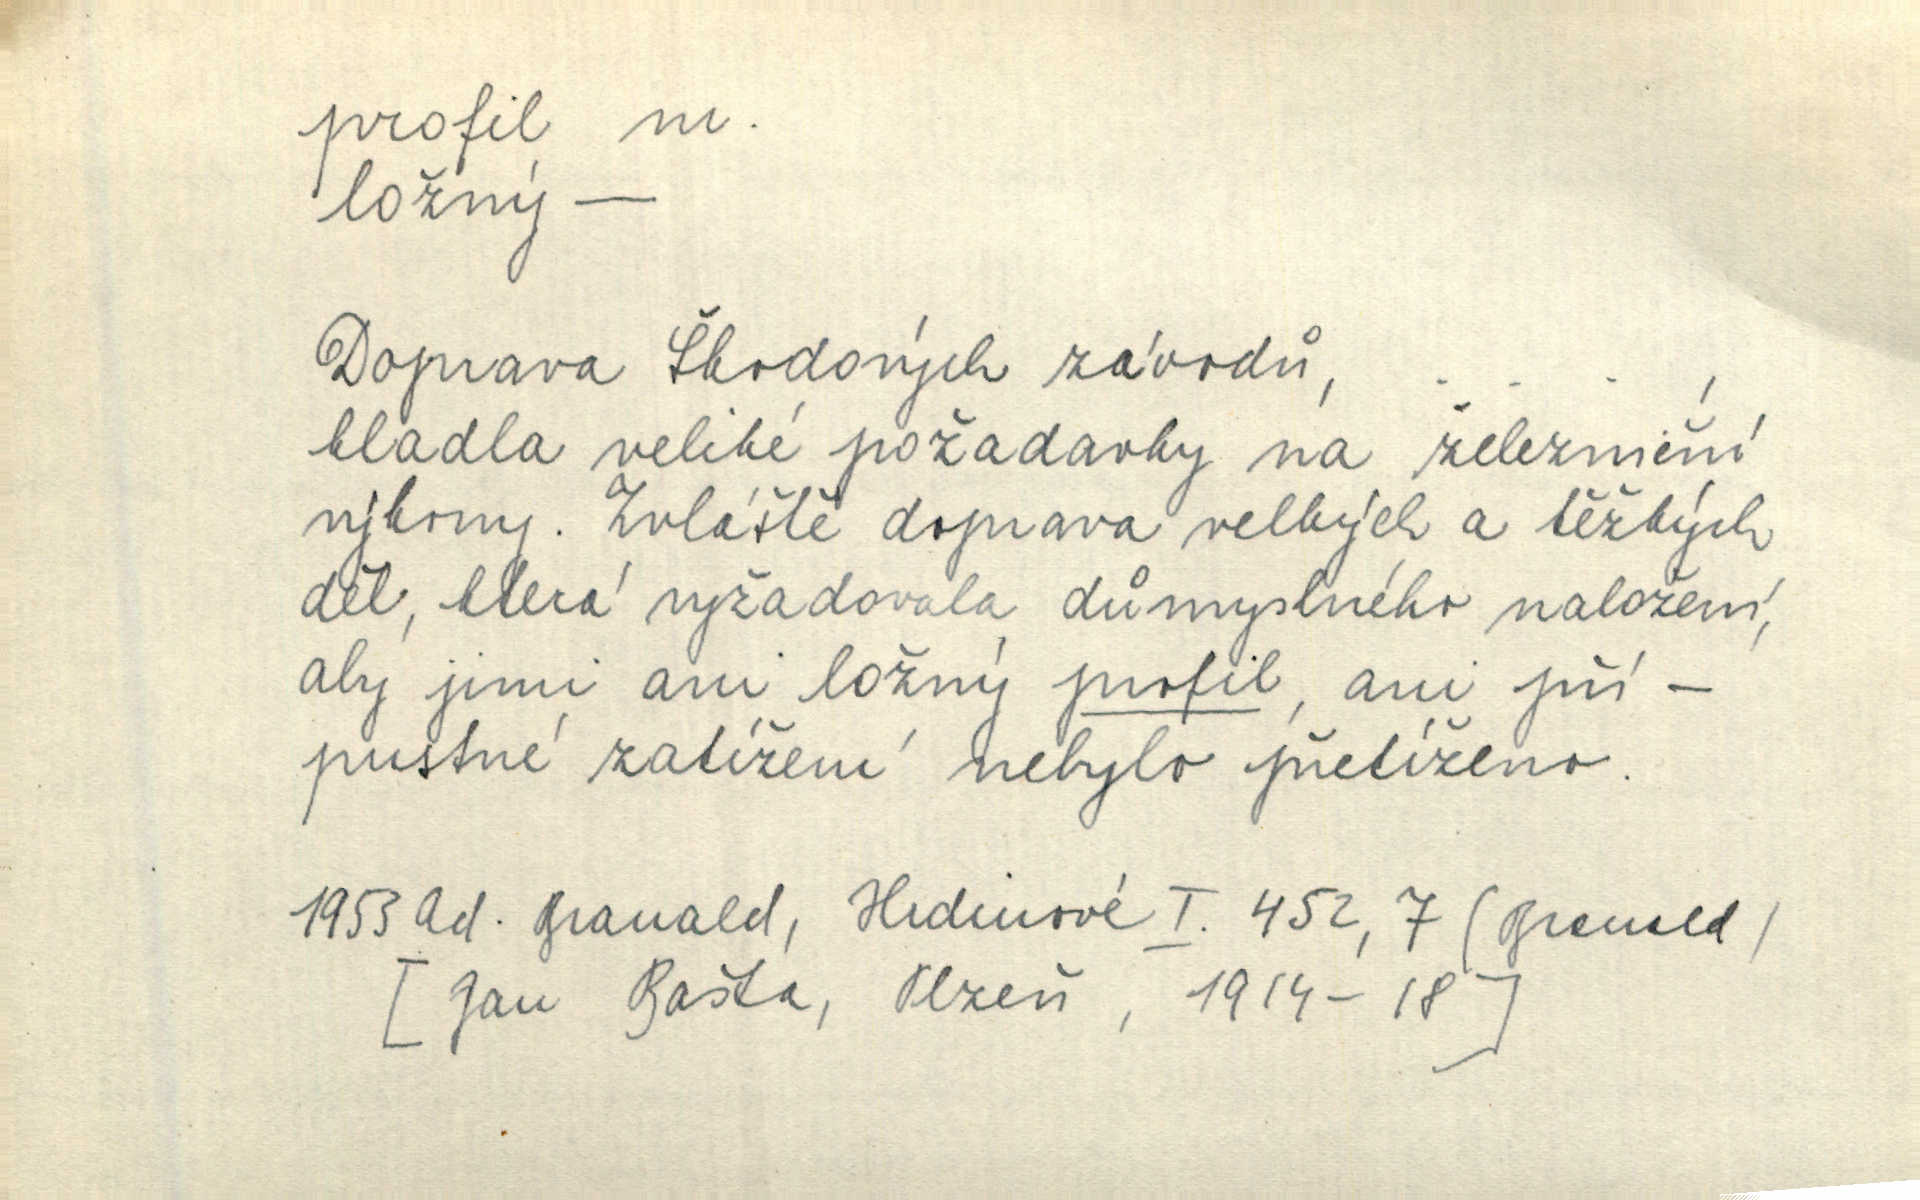 profil m.
ložný —
Doprava Škodových závodů, . . . ,
kladla veliké požadavky na železniční
výkony. Zvláště doprava velkých a těžkých
děl, která vyžadovala důmyslného naložení,
aby jimi ani ložný profil, ani pří-
pustné zatížení nebylo přetíženo.
1953 Ad. Branald, Hrdinové I. 452, 7 (Branald)
[Jan Bašta, Plzeň, 1914-18]